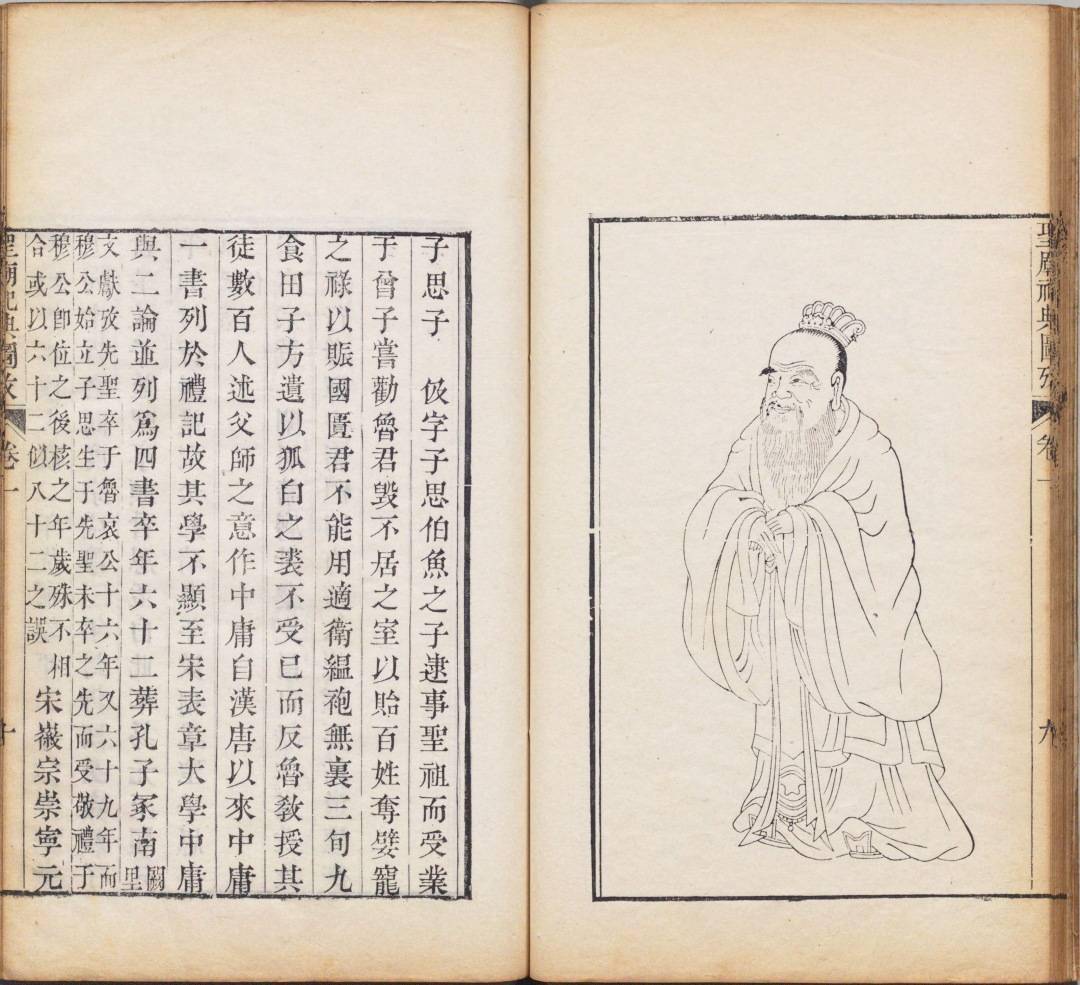 聖廟祀典圖攷 卷一 九
子思子 伋字子思伯魚之子逮事聖祖而受業
于曾子嘗勸魯君毀不居之室以貽百姓奪嬖寵
之祿以賑國匱君不能用適衛縕袍無裏三旬九
食田子方遺以狐白之裘不受已而反魯教授其
徒數百人述父師之意作中庸自漢唐以來中庸
一書列於禮記故其學不顯至宋表章大學中庸
與二論並列爲四書卒年六十二葬孔子冢南闕里
文獻攷先聖卒于魯哀公十六年又六十九年而
穆公始立子思生于先聖未卒之先而受敬禮于
穆公卽位之後核之年歲殊不相
合或以六十二似八十二之誤
宋徽宗崇寧元
聖廟祀典圖攷 卷一 十